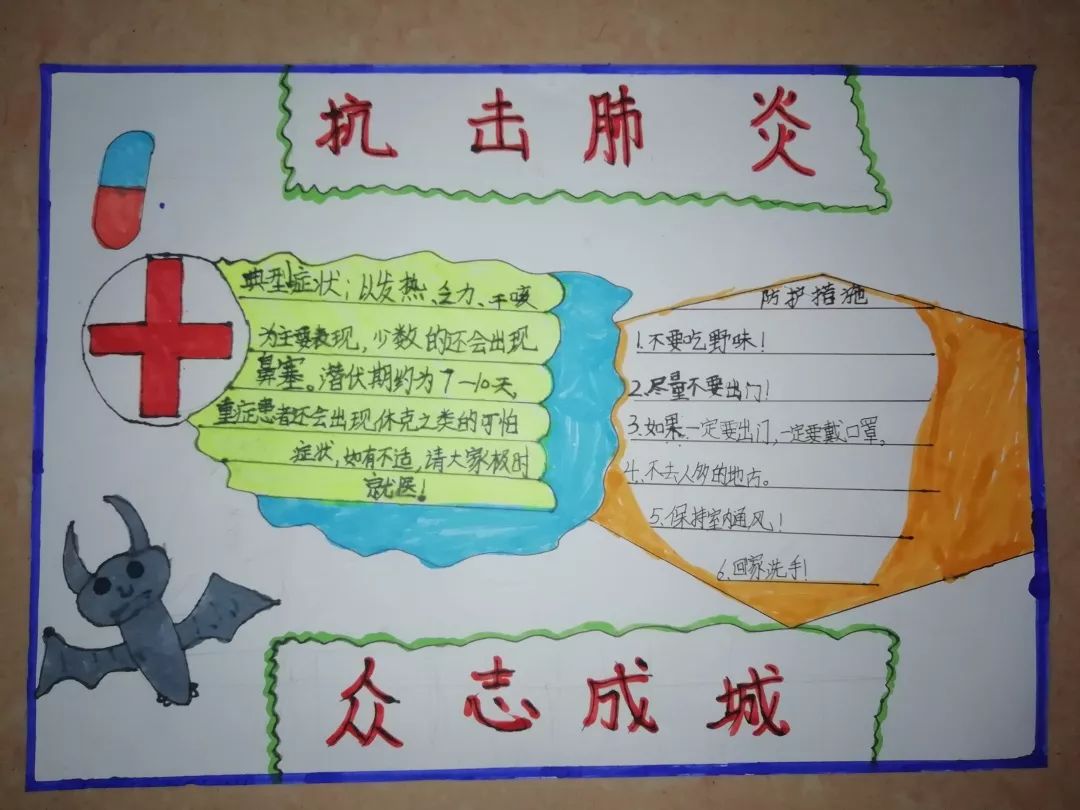 抗击肺炎
典型症状；以发热、乏力、干咳
为主要表现，少数的还会出现
鼻塞。潜伏期约为7—10天，
重症患者还会出现休克之类的可怕
症状，如有不适，请大家极时
就医！
防护措施
1.不要吃野味！
2.尽量不要出门！
3.如果一定要出门，一定要戴口罩。
4.不去人多的地方。
5.保持室内通风！
6.回家洗手！
众志成城